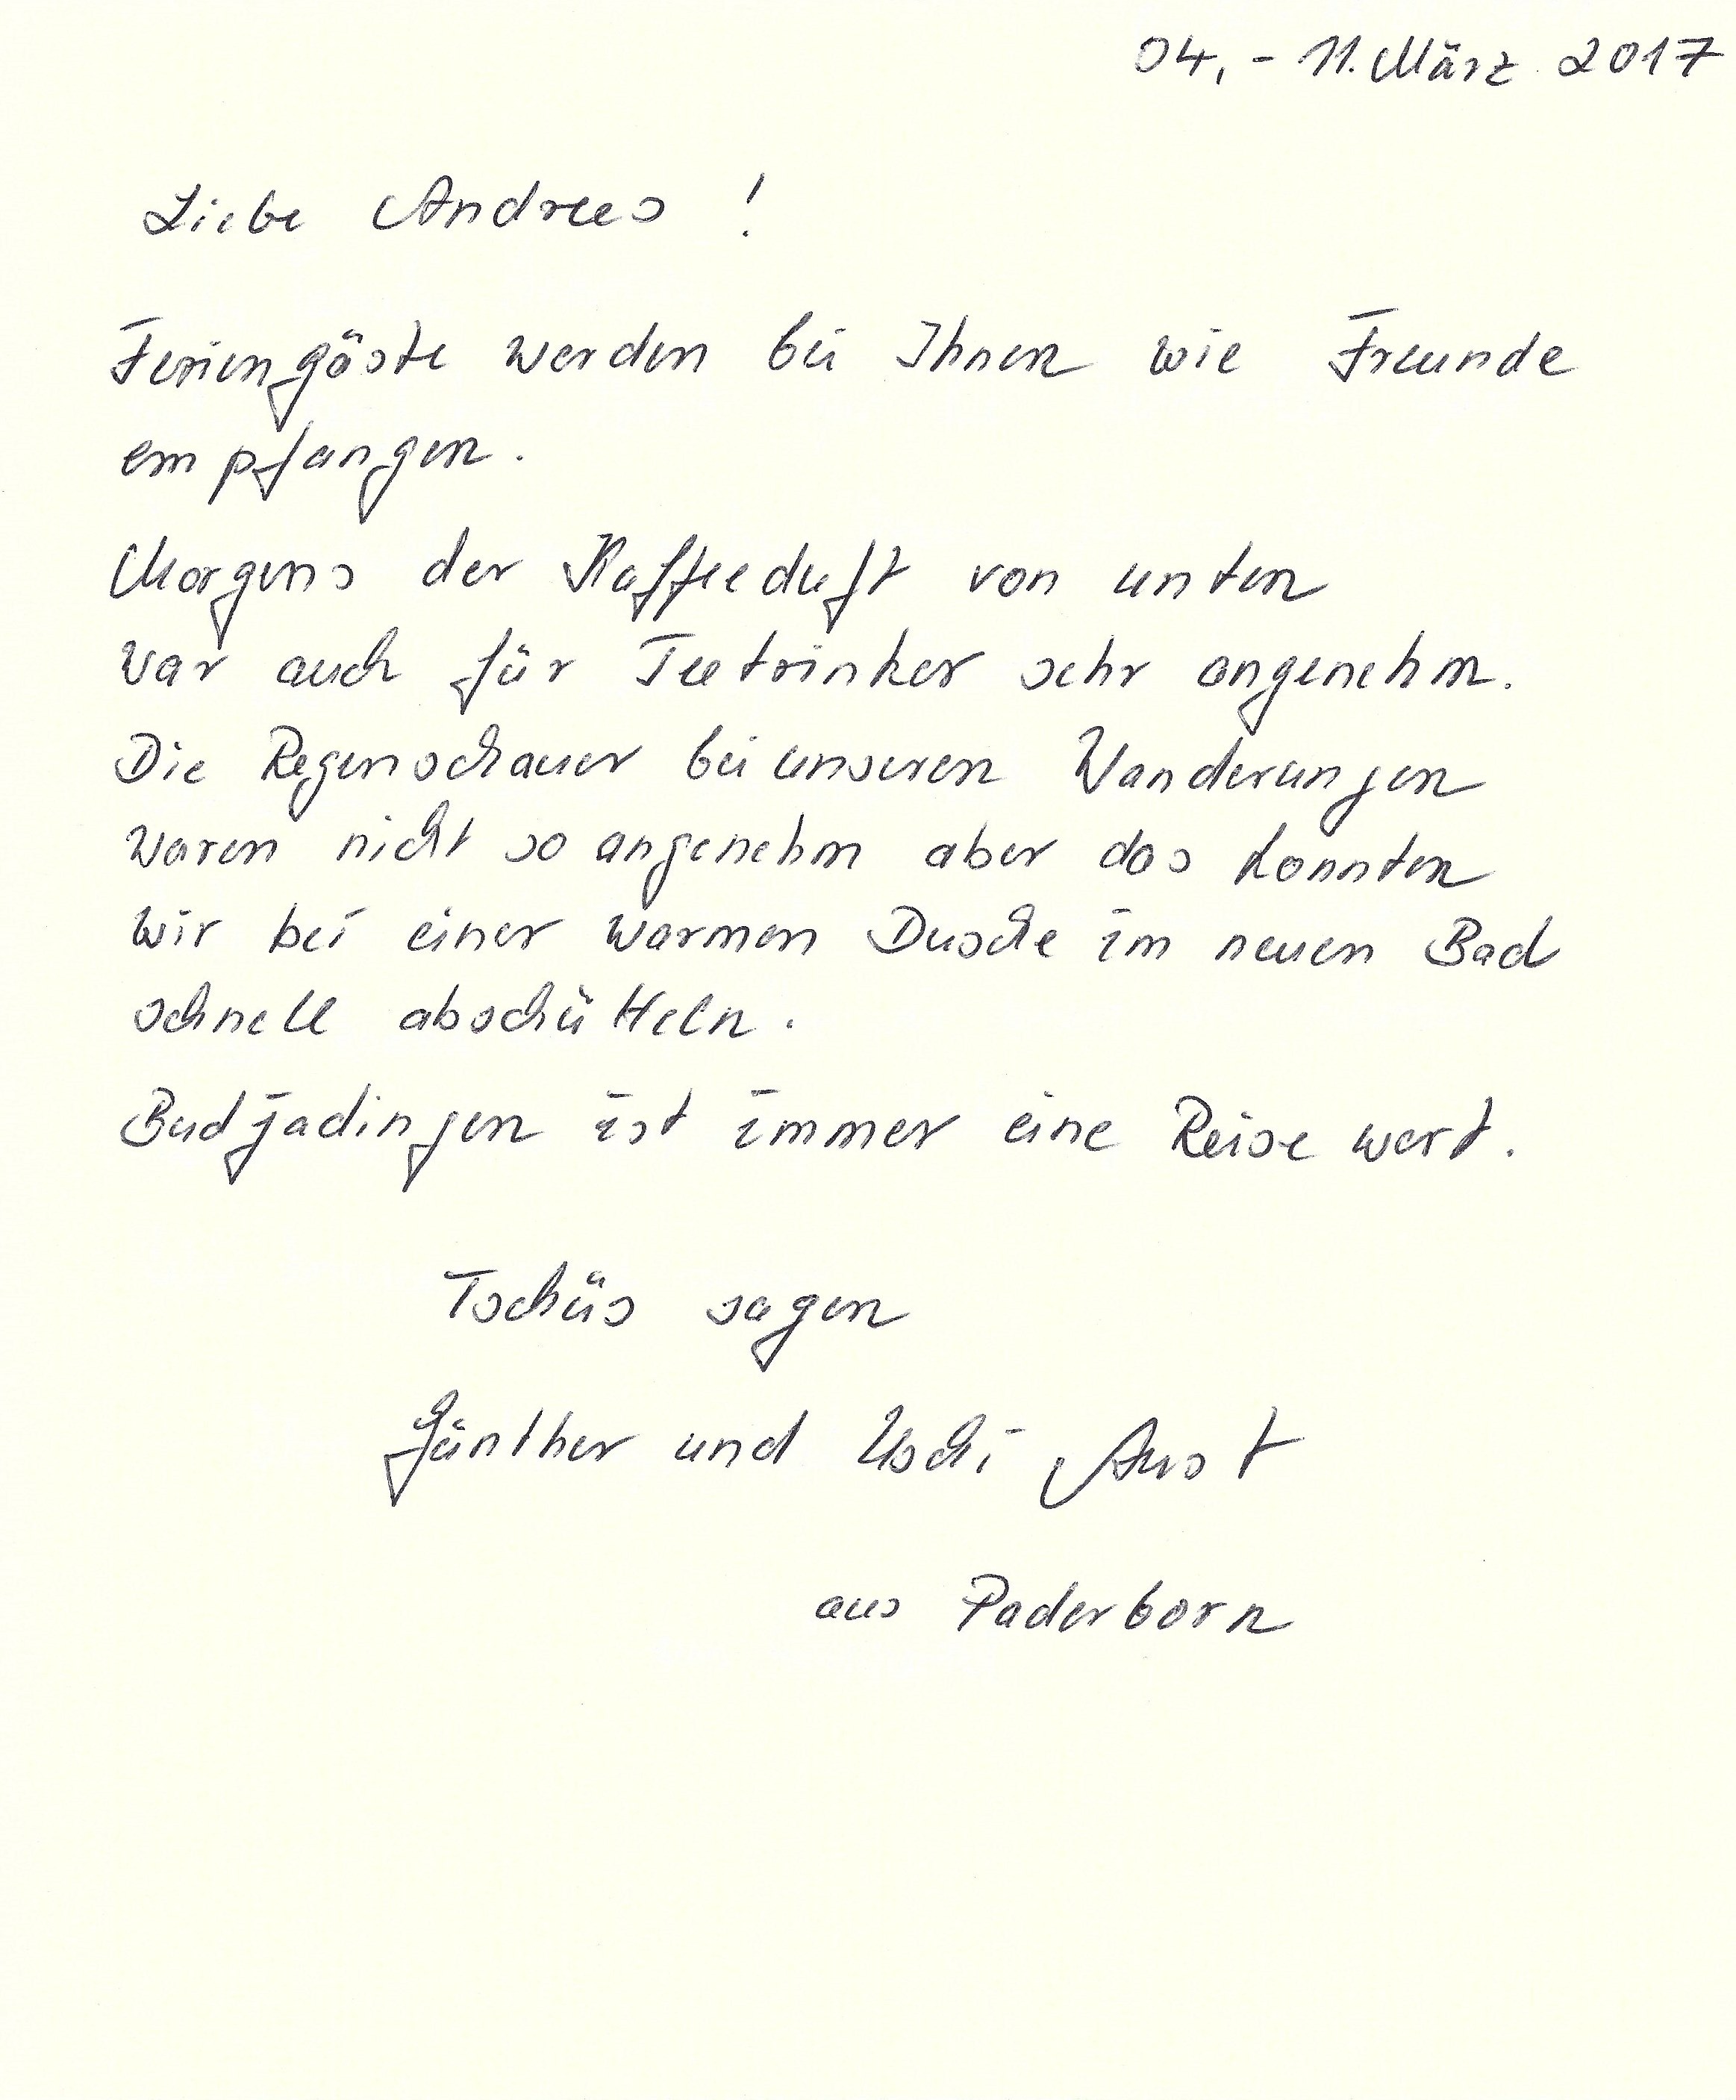 04. - 11. März 2017
Liebe Andrees !
Feriengäste werden bei Ihnen wie Freunde
empfangen.
Morgens der Kaffeeduft von unten
war auch für Teetrinker sehr angenehm.
Die Regenschauer bei unseren Wanderungen
waren nicht so angenehm aber das konnten
wir bei einer warmen Dusche im neuen Bad
schnell abschütteln.
Budjadingen ist immer eine Reise wert.
Tschüs sagen
Günther und Uschi Aust
aus Paderborn